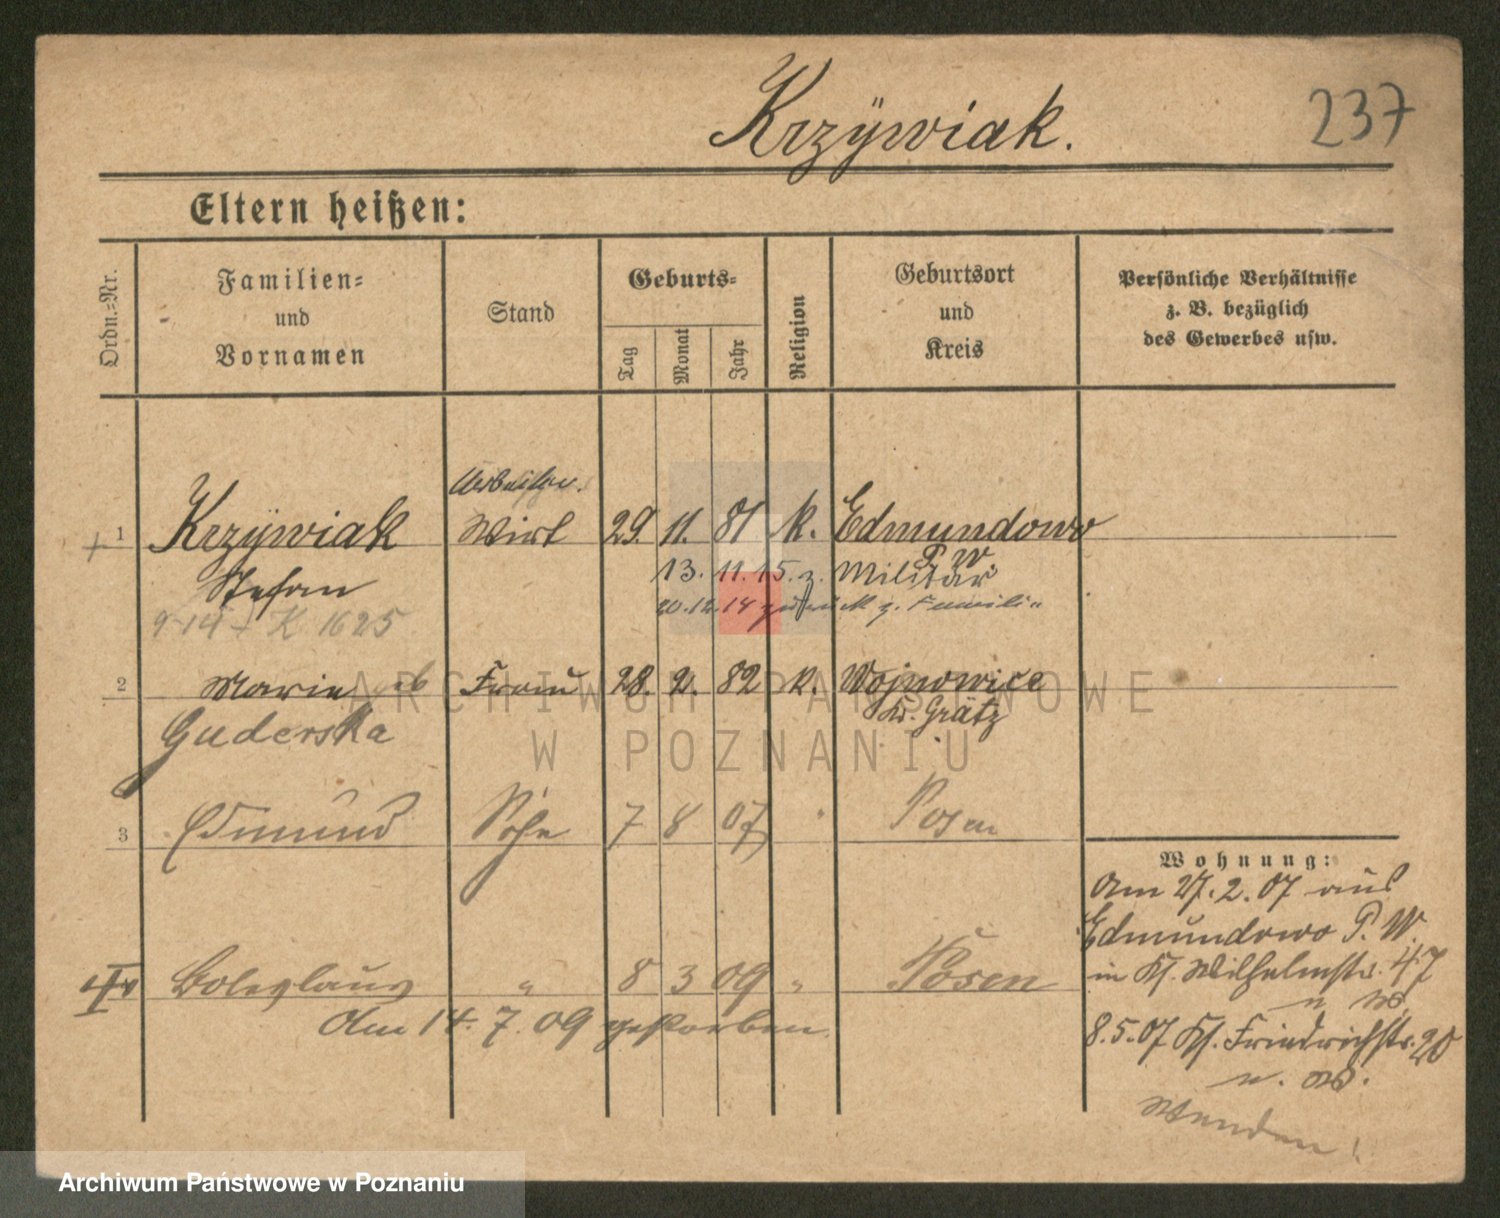 Krzÿwiak.
237
Eltern heißen:
Ordn.=Nr.
Familien=
und
Vornamen
Stand
Geburts=
Tag
Monat
Jahr
Religion
Geburtsort
und
Kreis
Persönliche Verhältnisse
z. B. bezüglich
des Gewerbes usw.
Arbeiter.
+ 1 Krzÿwiak Wirt 29. 11. 81 k. Edmundowo
P. W.
Stefan 13. 11. 15. z. Militär
9 14 + K. 1625
20.12.14 zurück z. Familie
2 Marie geb Frau 28. 2. 82 k. Wojnowice
Guderska Kr. Grätz
3 Edmund Sohn 7 8 07 " Posen
Wohnung:
Am 27. 2. 07 aus
Edmundowo P. W.
in Wilhelmstr. 47
8. 5. 07 Friedrichstr. 20
Wenden!
4 Boleslaus " 8 3 09 " Posen
Am 14. 7. 09 gestorben.
ARCHIWUM PAŃSTWOWE
W POZNANIU
Archiwum Państwowe w Poznaniu